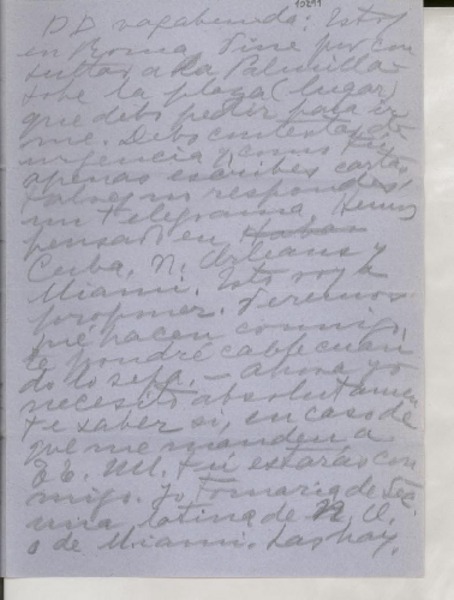 10291
DD vagabunda: Estoy
en Roma. Vine por con
sultar a la Palmilla
sobre la plaza (lugar)
que debo pedir para ir
me. Debo contestar de
urgencia y como tú
apenas escribes cartas,
tal vez no respondes
un telegrama. Hemos
pensado en Haban
Cuba, N. Orleans y
Miami. Esto voy a
proponer. Veremos
qué hacen conmigo,
te pondré cable cuan
do lo sepa. — Ahora yo
necesito absolutamen
te saber si, en caso de
que me manden a
EE. UU. tú estarás con
migo. Yo tomaría de Sec.
una latina de N. O.
o de Miami. Las hay.